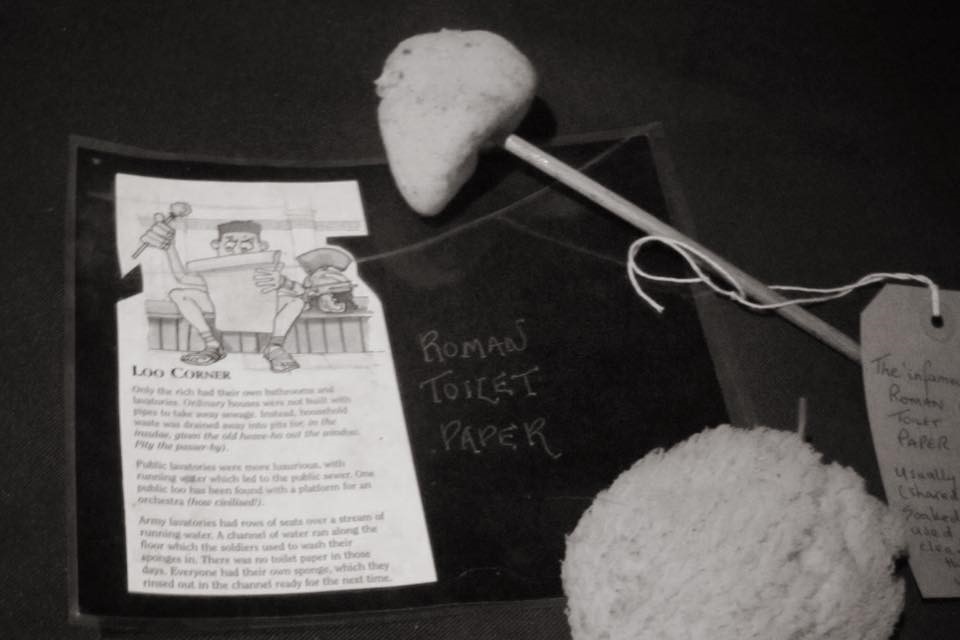 LOO CORNER
Only the rich had their own bathrooms and
lavatories. Ordinary houses were not built with
pipes to take away sewage. Instead, household
waste was drained away into pits (or, in the
insulae, given the old heave-ho out the window.
Pity the passer-by).
Public lavatories were more luxurious, with
running water which led to the public sewer. One
public loo has been found with a platform for an
orchestra (how civilised!).
Army lavatories had rows of seats over a stream of
running water. A channel of water ran along the
floor which the soldiers used to wash their
sponges in. There was no toilet paper in those
days. Everyone had their own sponge, which they
rinsed out in the channel ready for the next time.
ROMAN
TOILET
PAPER
The 'infamou
ROMAN
TOILET
PAPER
Usually
(shared
Soaked
used
clea